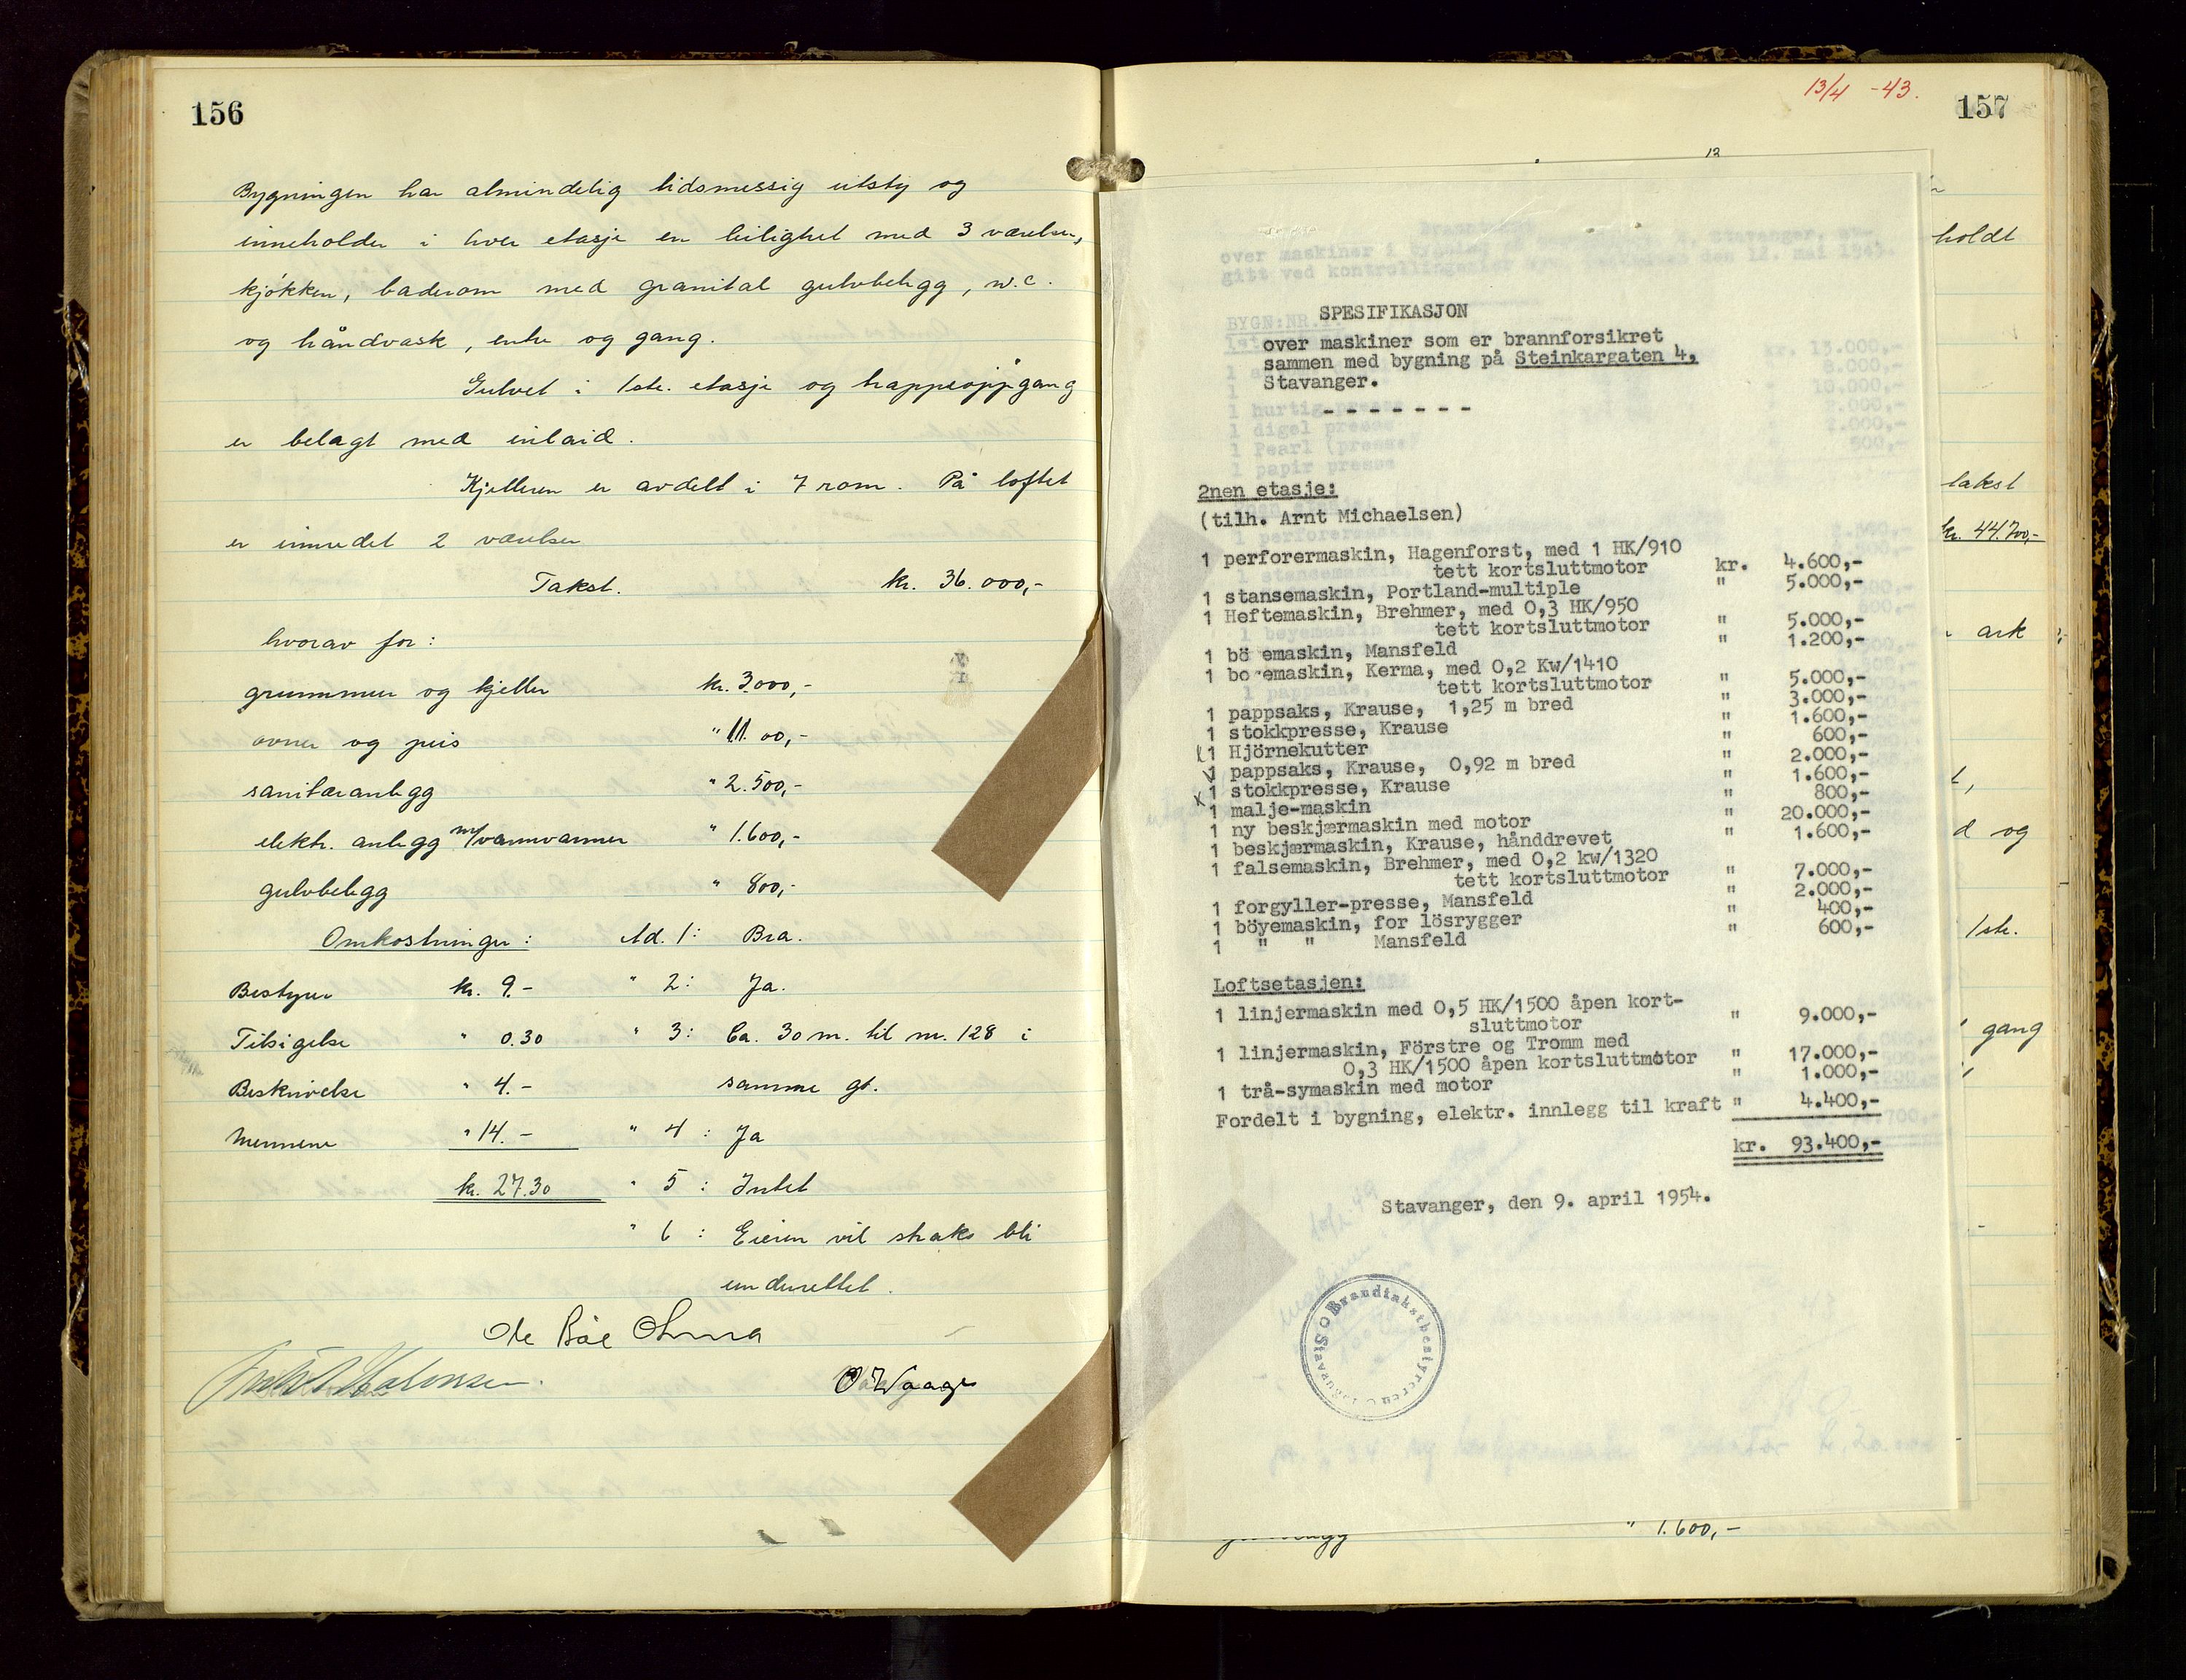 156
Bygningen har almindelig tidsmessig utsty og
inneholder i hver etasje en leilighet med 3 værelser,
kjøkken, baderom med granital gulvbelegg, w.c.
og håndvask, entre og gang.
Gulvet i 1ste. etasje og trappeoppgang
er belagt med inlaid.
Kjelleren er avdelt i 7 rom. På loftet
er innredet 2 værelser
Takst. kr. 36.000,-
hvorav for:
grunnmur og kjeller kr. 3.000,-
ovner og peis " 11.00,-
sanitæranlegg " 2.500,-
elektr. anlegg m/varmvanner " 1.600,-
gulvbelegg " 800,-
Omkostninger: Ad. 1: Bra.
Bestyrer kr. 9.- " 2: Ja.
Tilsigelse " 0.30 " 3: Ca. 30 m. til nr. 128 i
Beskrivelse " 4.- samme gt.
Mennene " 14.- " 4: Ja
kr. 27.30 " 5: Intet
" 6: Eieren vil straks bli
underrettet.
Ole Bøe
O Waage
13/4 -43.
157
12
holdt
takst
kr. 44.700,-
ark
d og
1ste.
gang
SPESIFIKASJON
over maskiner som er brannforsikret
sammen med bygning på Steinkargaten 4,
Stavanger.
- - - - - - -
2nen etasje:
(tilh. Arnt Michaelsen)
1 perforermaskin, Hagenforst, med 1 HK/910
tett kortsluttmotor kr. 4.600,-
1 stansemaskin, Portland-multiple " 5.000,-
1 Heftemaskin, Brehmer, med 0,3 HK/950
tett kortsluttmotor " 5.000,-
1 bö emaskin, Mansfeld " 1.200,-
1 boremaskin, Kerma, med 0,2 Kw/1410
tett kortsluttmotor " 5.000,-
1 pappsaks, Krause, 1,25 m bred " 3.000,-
1 stokkpresse, Krause " 1.600,-
1 Hjörnekutter " 600,-
1 pappsaks, Krause, 0,92 m bred " 2.000,-
1 stokkpresse, Krause " 1.600,-
x 1 malje-maskin " 800,-
1 ny beskjærmaskin med motor " 20.000,-
1 beskjærmaskin, Krause, hånddrevet " 1.600,-
1 falsemaskin, Brehmer, med 0,2 kw/1320
tett kortsluttmotor " 7.000,-
1 forgyller-presse, Mansfeld " 2.000,-
1 böyemaskin, for lösrygger " 400,-
1 " " Mansfeld " 600,-
Loftsetasjen:
1 linjermaskin med 0,5 HK/1500 åpen kort-
sluttmotor " 9.000,-
1 linjermaskin, Förstre og Tromm med
0,3 HK/1500 åpen kortsluttmotor " 17.000,-
1 trå-symaskin med motor " 1.000,-
Fordelt i bygning, elektr. innlegg til kraft " 4.400,-
kr. 93.400,-
Stavanger, den 9. april 1954.
Brandtakstbestyreren i Stavanger
" 1.600,-